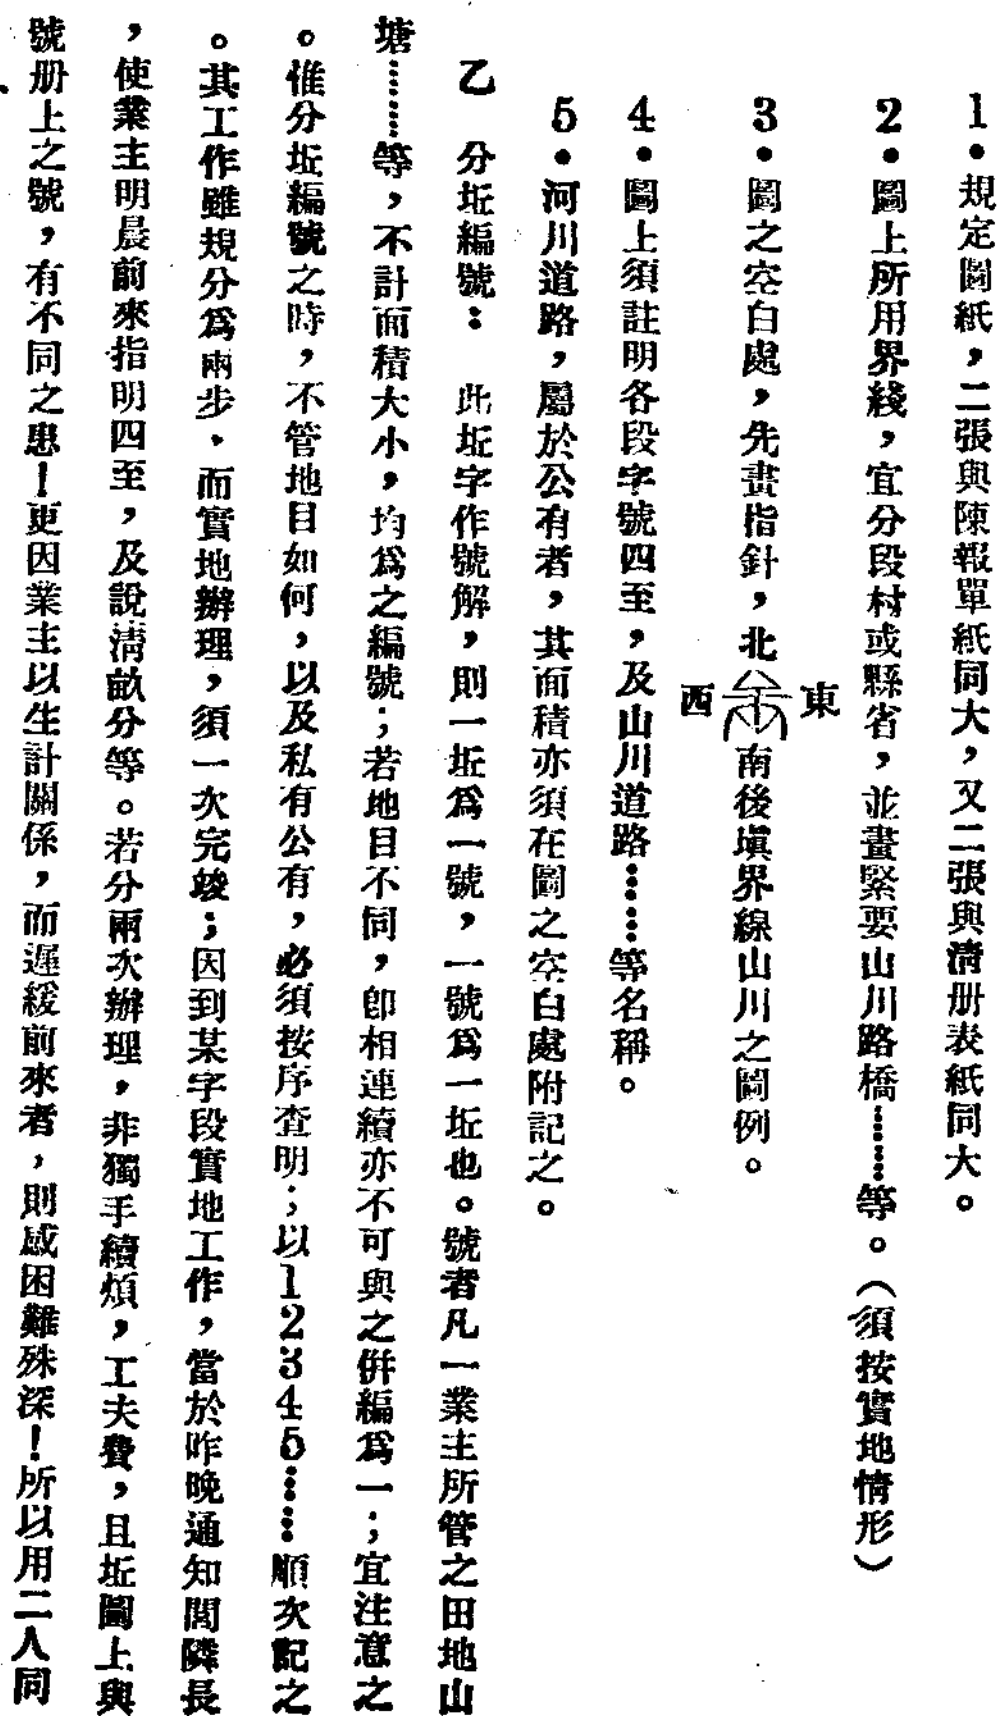 1•規定圖紙，二張與陳報單紙同大，又二張與淸册表紙同大。
2•圖上所用界綫，宜分段村或縣省，並畫緊要山川路橋……等。（須按實地情形）
3•圖之空白處，先畫指針，北
東
西
南後塡界線山川之圖例。
4•圖上須註明各段字號四至，及山川道路……等名稱。
5•河川道路，屬於公有者，其面積亦須在圖之空白處附記之。
乙　分坵編號：　此坵字作號解，則一坵爲一號，一號爲一坵也。號者凡一業主所管之田地山
塘……等，不計面積大小，均爲之編號；若地目不同，卽相連續亦不可與之倂編爲一；宜注意之
。惟分坵編號之時，不管地目如何，以及私有公有，必須按序查明；以12345……順次記之
。其工作雖規分爲兩步．而實地辦理，須一次完竣；因到某字段實地工作，當於昨晚通知閭隣長
，使業主明晨前來指明四至，及說淸畝分等。若分兩次辦理，非獨手續煩，工夫費，且坵圖上與
號册上之號，有不同之患！更因業主以生計關係，而遲緩前來者，則感困難殊深！所以用二人同